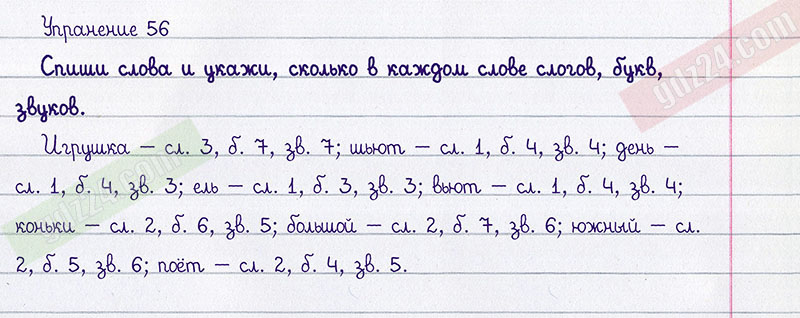 Упранение 56
Спиши слова и укажи, сколько в каждом слове слогов, букв,
звуков.
Игрушка – сл. 3, б. 7, зв. 7; шьют – сл. 1, б. 4, зв. 4; день –
сл. 1, б. 4, зв. 3; ель – сл. 1, б. 3, зв. 3; вьют – сл. 1, б. 4, зв. 4;
коньки – сл. 2, б. 6, зв. 5; большой – сл. 2, б. 7, зв. 6; южный – сл.
2, б. 5, зв. 6; поёт – сл. 2, б. 4, зв. 5.
gdz24.com
gdz24.com